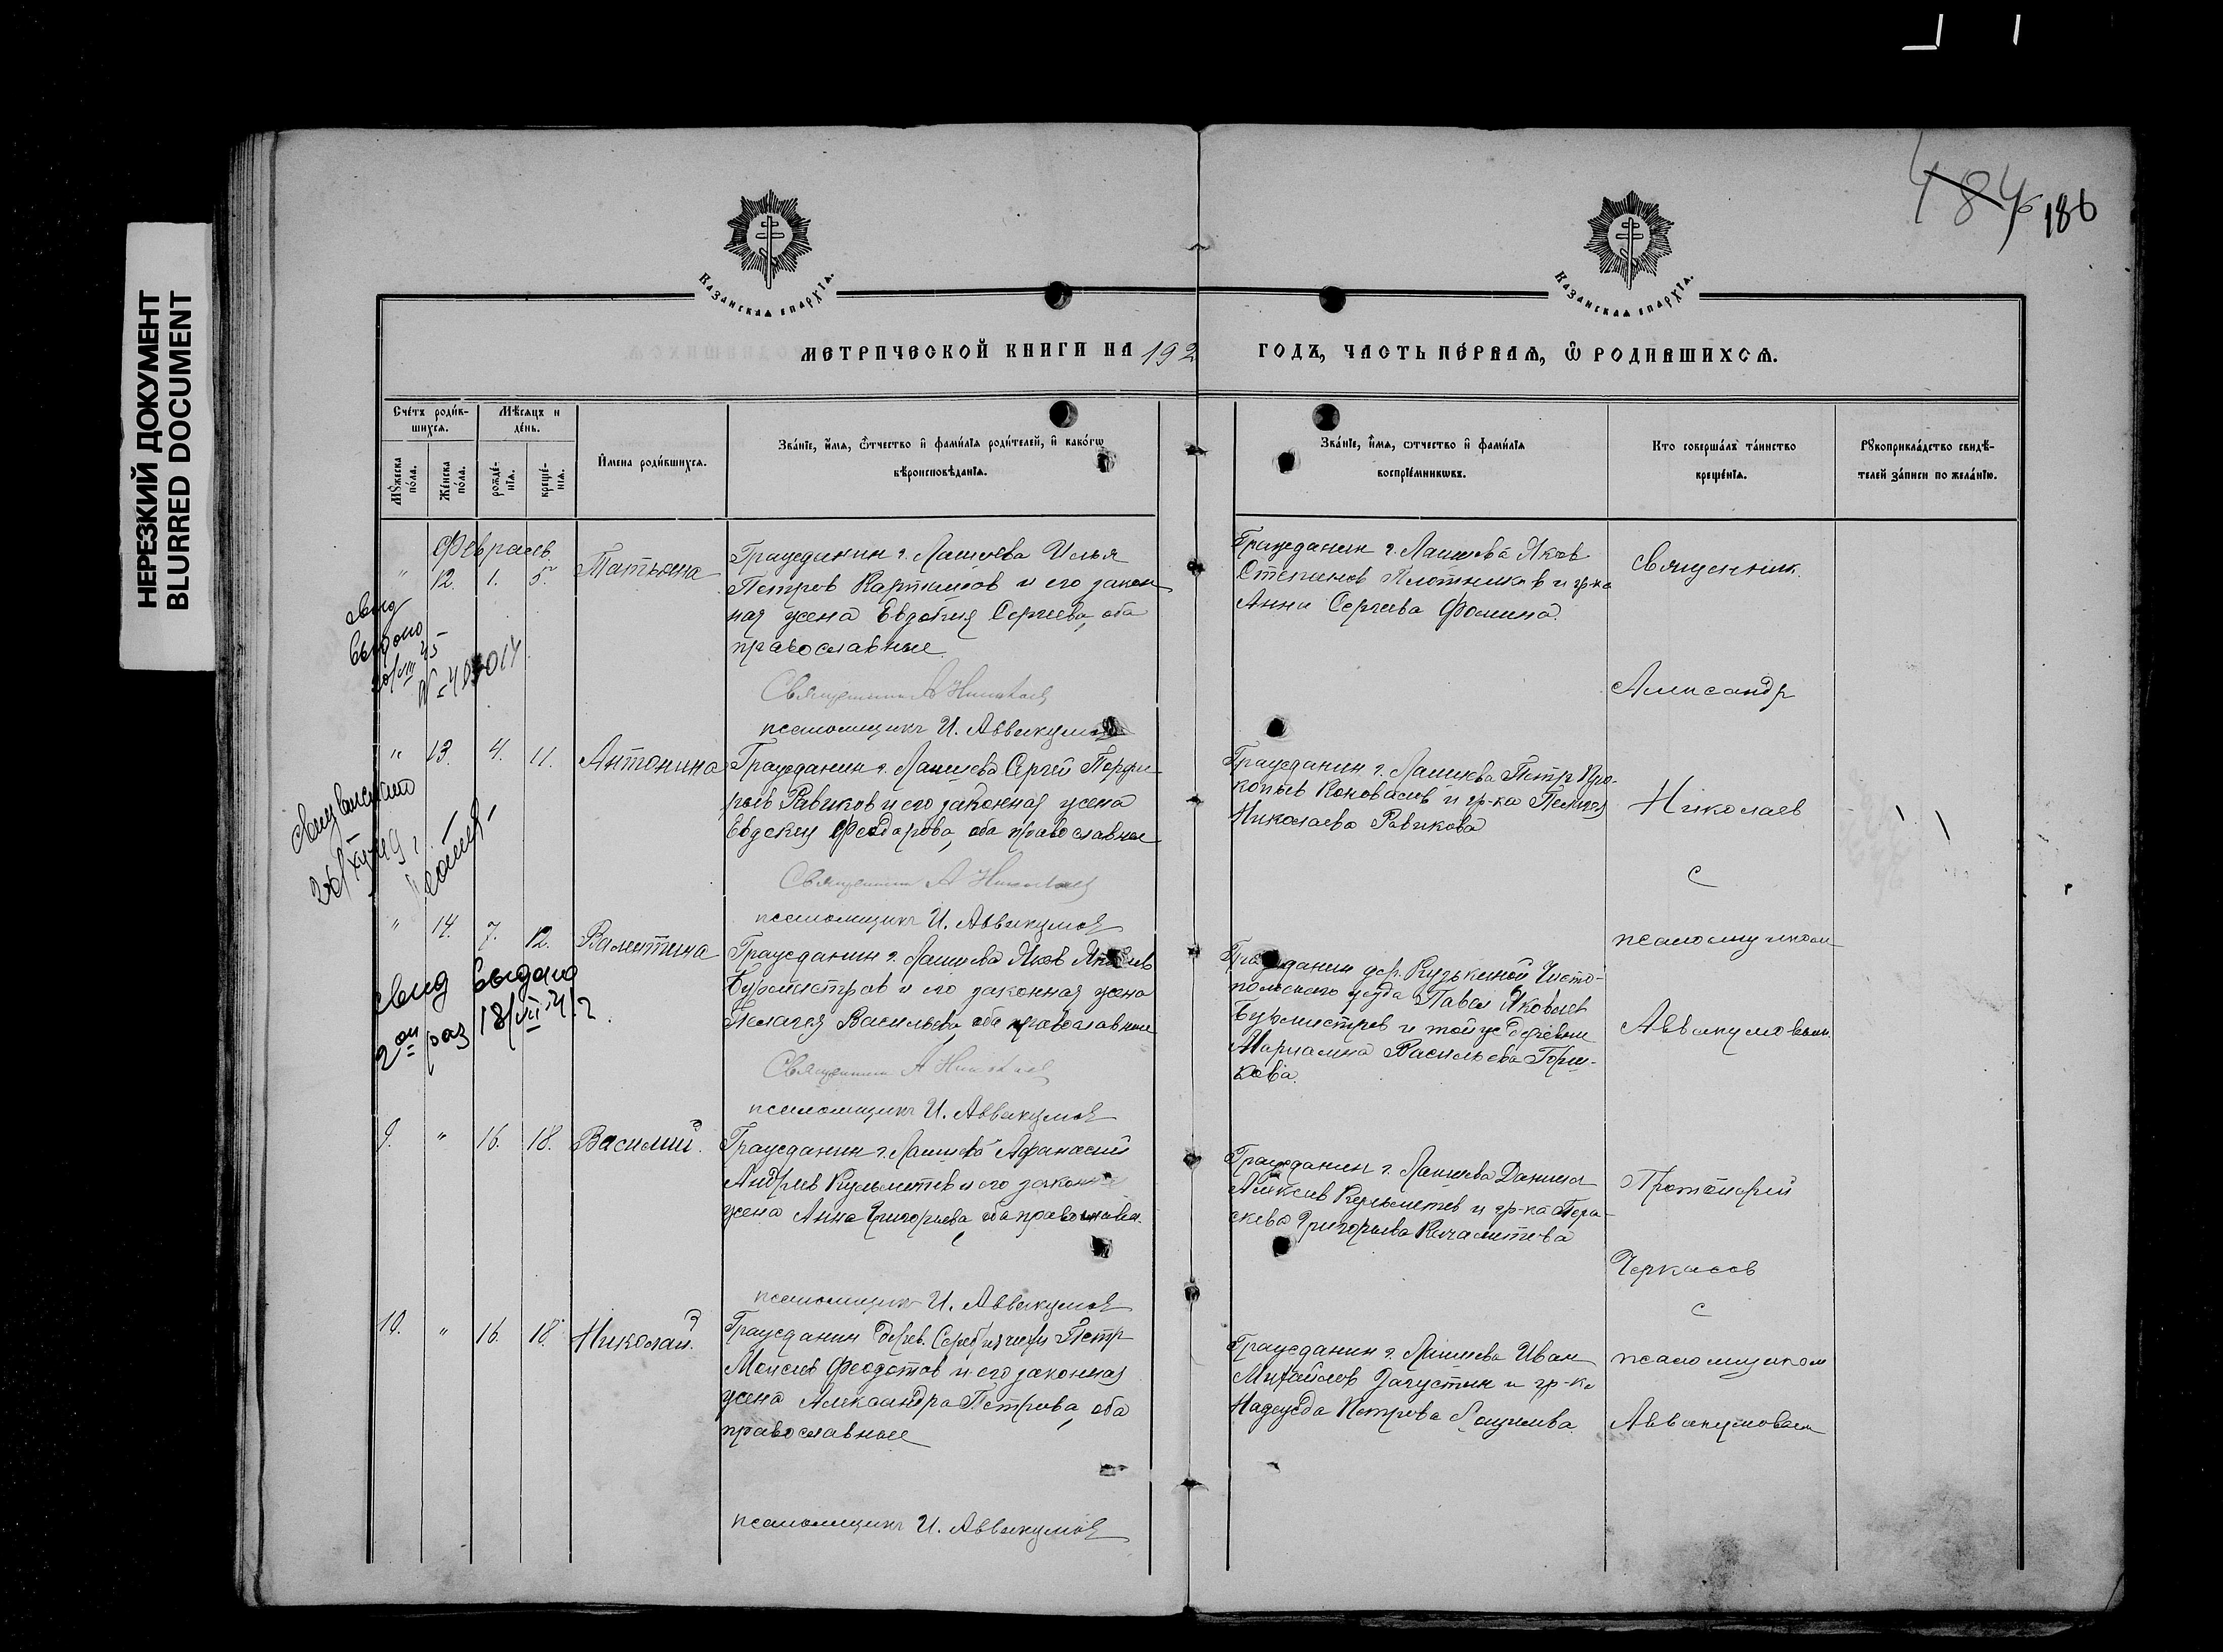 НЕРЕЗКИЙ ДОКУМЕНТ
BLURRED DOCUMENT
484б 186
Казанская епархїѧ.
Казанская епархїѧ.
МЕТРИЧЕСКОЙ КНИГИ НА 192
ГОДЪ, ЧАСТЬ ПЕ́РВАѦ, Ѽ РОДИВШИХСѦ.
Сче́тъ роди́в-
шихсѧ.
Мꙋ́жеска по́ла.
Же́нска по́ла.
Мѣ́сѧцъ и
де́нь.
рожде́-
нїѧ.
креще́-
нїѧ.
И҆мена роди́вшихсѧ.
Зва́нїе, и҆́мѧ, ѻ҆́тчество и҆ фами́лїѧ роди́телей, и҆ како́гѡ
вѣроисповѣ́данїѧ.
Зва́нїе, и҆́мѧ, ѻтчество и҆ фами́лїѧ
воспрїе́мниковъ.
Кто соверша́лъ та́инство
креще́нїѧ.
Рꙋкоприкла́дство свидѣ́-
телей за́писи по жела́нїю.
Февраль
" 12. 1. 5. Татьяна
Гражданин г. Лаишева Илья
Петров Карташов и его закон
ная жена Евдокия Сергеева, оба
православные
Священник А Николаев
псаломщикъ И. Аввакумов
Гражданин г. Лаишева Яков
Степанов Плотников и гр-ка
Анна Сергеева Фомина.
Священник
Александр
Николаев
с
псаломщиком
Аввакумовым
свид
выдано
" 13. 4. 11. Антонина
Гражданин г. Лаишева Сергей Порфи
рьев Равиков и его законная жена
Евдокия Феодорова, оба православные
Священник А Николаев
псаломщикъ И. Аввакумов
Гражданин г. Лаишева Петр Про-
копьев Коновалов и гр-ка Пелагея
Николаева Равикова
" 14. 7. 12. Валентина
Гражданин г. Лаишева Яков Яковлев
Бурмистров и его законная жена
Пелагея Васильева, оба православные
Священник А Николаев
псаломщикъ И. Аввакумов
Гражданин дер. Кузькиной Чисто-
польского уезда Павел Яковлев
Бурмистров и той же деревни
Марианна Васильева Горш-
кова.
свид выдано
2ой раз 18/VII
9. " 16. 18. Василий.
Гражданин г. Лаишева Афанасий
Андреев Кульметев и его законная
жена Анна Григорьева, оба православн.
псаломщикъ И. Аввакумов
Гражданин г. Лаишева Даниил
Алексеев Кульметев и гр-ка Пара-
скева Григорьева
Протоиерей
Черкасов
с
псаломщиком
Аввакумовым
10. " 16. 18. Николай.
Гражданин дерев. Петр
Моисеев Феодотов и его законная
жена Александра Петрова, оба
православные
псаломщикъ И. Аввакумов
Гражданин г. Лаишева Иван
Михайлов и гр-ка
Надежда Петрова